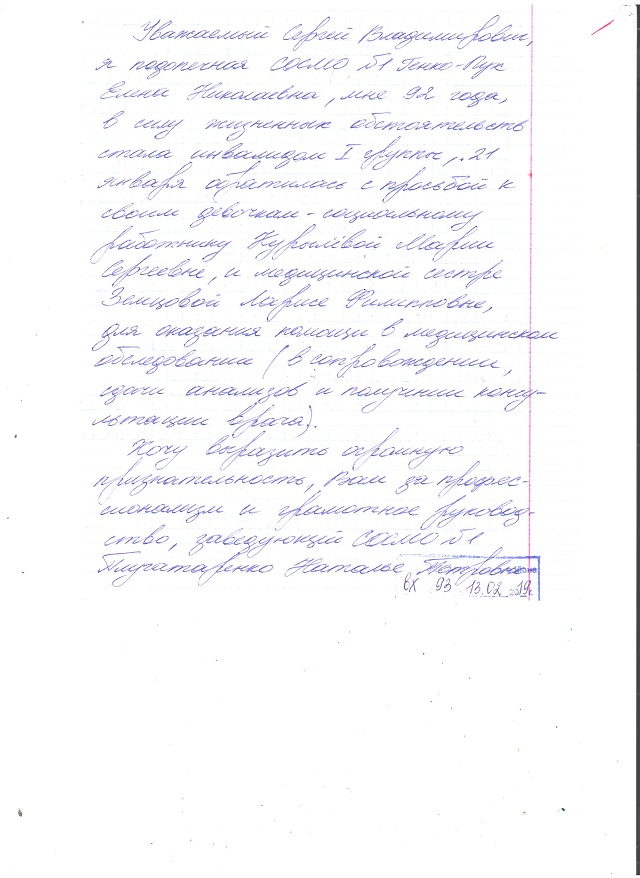 Уважаемый Сергей Владимирович,
я подопечная СОСМО №1 Генко-Пук
Елена Николаевна, мне 92 года,
в силу жизненных обстоятельств
стала инвалидом I группы, 21
января обратилась с просьбой к
своим девочкам - социальному
работнику Курылёвой Марии
Сергеевне, и медицинской сестре
Земцовой Ларисе Филипповне,
для оказания помощи в медицинском
обследовании (в сопровождении,
сдачи анализов и получении консу-
льтации врача).
Хочу выразить огромную
признательность, Вам за профес-
сионализм и грамотное руковод-
ство, заведующей СОСМО №1
Наталье Петровне
вх 93 13.02 2019г.